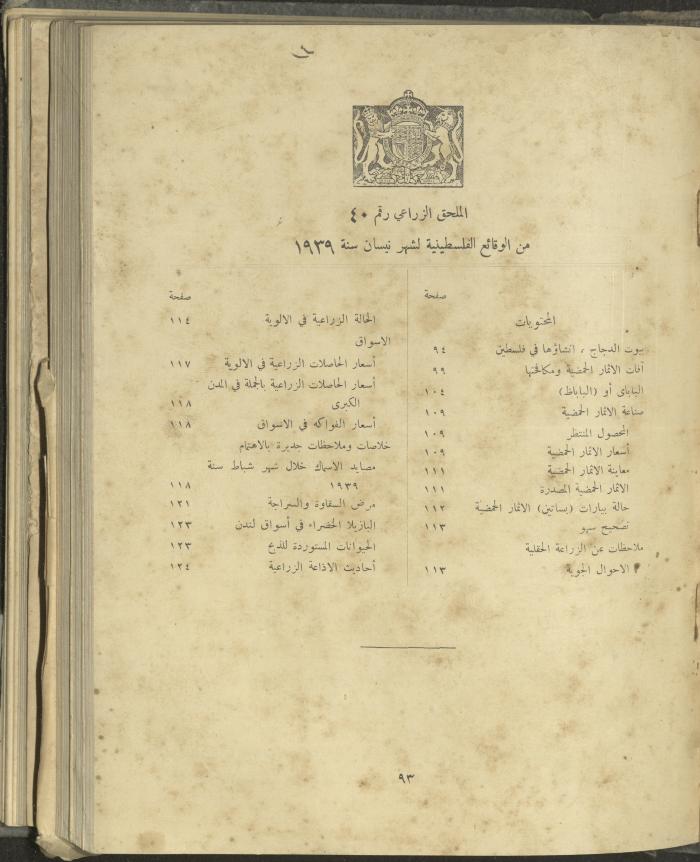 الملحق الزراعي رقم ٤٠
من الوقائع الفلسطينية لشهر نيسان سنة ١٩٣٩
صفحة
المحتويات
بيوت الدجاج ، انشاؤها في فلسطين ٩٤
آفات الاثمار الحمضية ومكافحتها ٩٩
الباباى أو (الباباظ) ١٠٤
صناعة الاثمار الحمضية ١٠٩
المحصول المنتظر ١٠٩
أسعار الاثمار الحمضية ١٠٩
معاينة الاثمار الحمضية ١١١
الاثمار الحمضية المصدرة ١١١
حالة بيارات (بساتين) الاثمار الحمضية ١١٢
تصحيح سهو ١١٣
ملاحظات عن الزراعة الحقلية
الاحوال الجوية ١١٣
صفحة
الحالة الزراعية في الالوية ١١٤
الاسواق
أسعار الحاصلات الزراعية في الالوية ١١٧
أسعار الحاصلات الزراعية بالجملة في المدن
الكبرى ١١٨
أسعار الفواكه في الاسواق ١١٨
خلاصات وملاحظات جديرة بالاهتمام
مصايد الاسماك خلال شهر شباط سنة
١٩٣٩ ١١٨
مرض السقاوة والسراجة ١٢١
البازيلا الخضراء في أسواق لندن ١٢٣
الحيوانات المستوردة للذبح ١٢٣
أحاديث الاذاعة الزراعية ١٢٤
٩٣